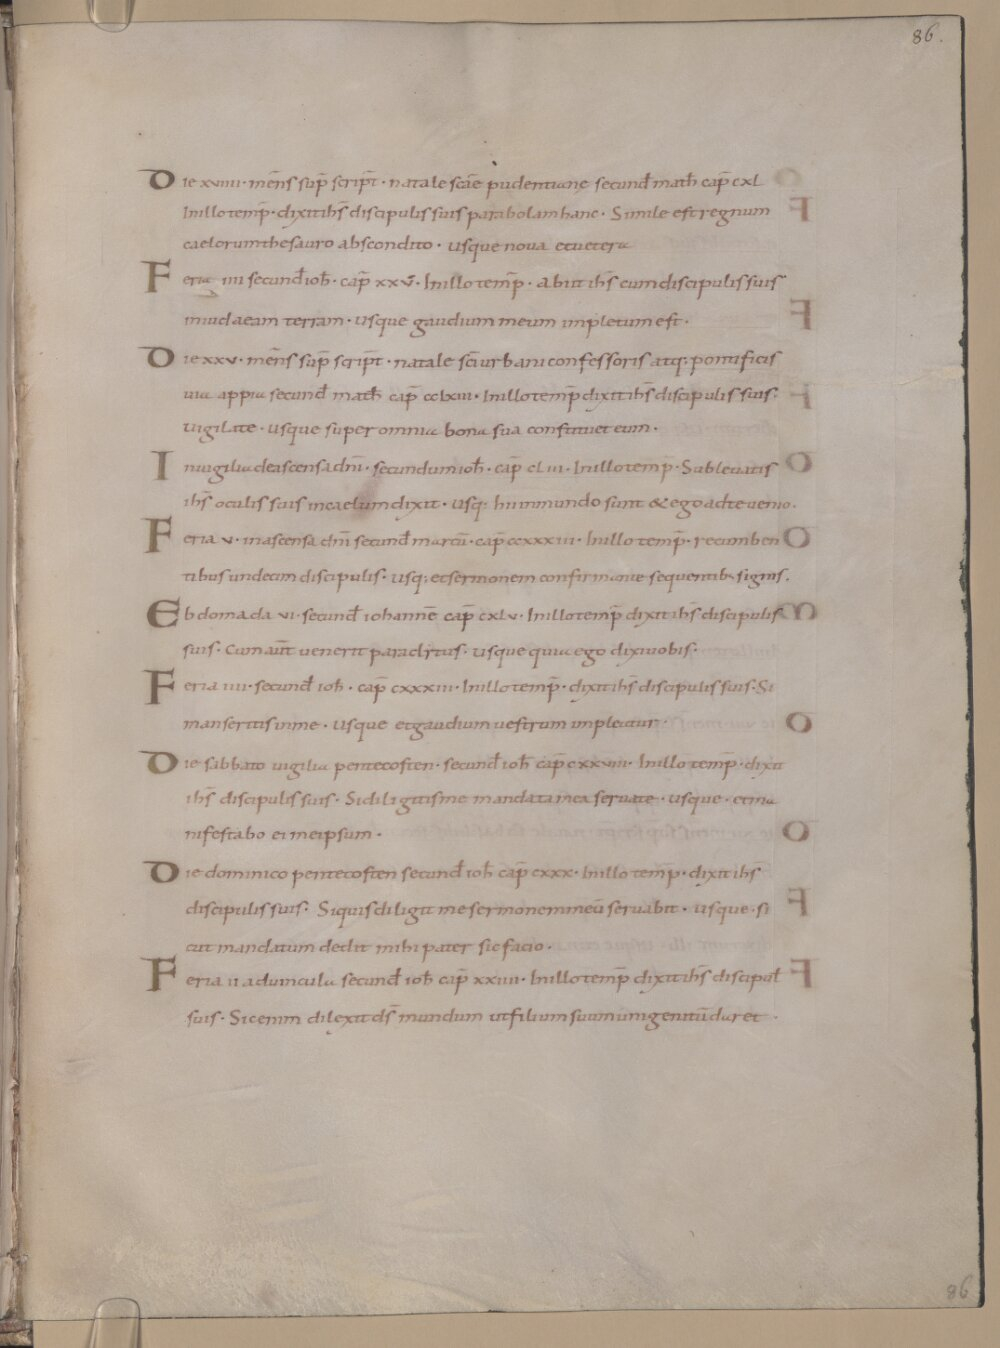 86.
Die xviiii · mēns sup̄ script̄ · natale scāe pudentiane secund̄ math̄ cap̄ cxl
In illo temp̄ · dixit ih̄s discipulis suis parabolam hanc · Simile est regnum
caelorum thesauro abscondito · usque nova et vetera
Feria iiii secund̄ ioh̄ · cap̄ xxv · In illo temp̄ · abiit ih̄s cum discipulis suis
in iudaeam terram · usque gaudium meum impletum est ·
Die xxv · mēns sup̄ script̄ · natale sc̄i urbani confessoris atq: pontificis
via appia secund̄ math̄ cap̄ cclxiii · In illo temp̄ dixit ih̄s discipulis suis:
vigilate · usque super omnia bona sua constituet eum ·
In vigilia de ascensa dn̄i · secundum ioh̄ · cap̄ cliii · In illo temp̄ · Sublevatis
ih̄s oculis suis in caelum dixit · usq: hi in mundo sunt & ego ad te venio ·
Feria v · in ascensa dn̄i secund̄ marcū · cap̄ ccxxxiii · In illo temp̄ · recumben
tibus undecim discipulis · usq: et sermonem confirmante sequentib· signis ·
Ebdomada vi · secund̄ iohannē cap̄ cxlv · In illo temp̄ dixit ih̄s discipulis
suis · Cum aūt venerit paraclitus · usque quia ego dixi vobis ·
Feria iiii · secund̄ ioh̄ · cap̄ cxxxiii · In illo temp̄ · dixit ih̄s discipulis suis · Si
manseritis in me · usque et gaudium vestrum impleatur ·
Die sabbato vigilia pentecosten · secund̄ ioh̄ cap̄ cxxviii · In illo temp̄ · dixit
ih̄s discipulis suis · Si diligitis me mandata mea servate · usque · et ma
nifestabo ei meipsum ·
Die dominico pentecosten secund̄ ioh̄ cap̄ cxxx · In illo temp̄ · dixit ih̄s
discipulis suis · Siquis diligit me sermonem meū servabit · usque · si
cut mandatum dedit mihi pater sic facio ·
Feria ii ad vincula secund̄ ioh̄ cap̄ xxiiii · In illo temp̄ dixit ih̄s discipul̄
suis · Sic enim dilexit ds̄ mundum ut filium suum unigenitū daret ·
86